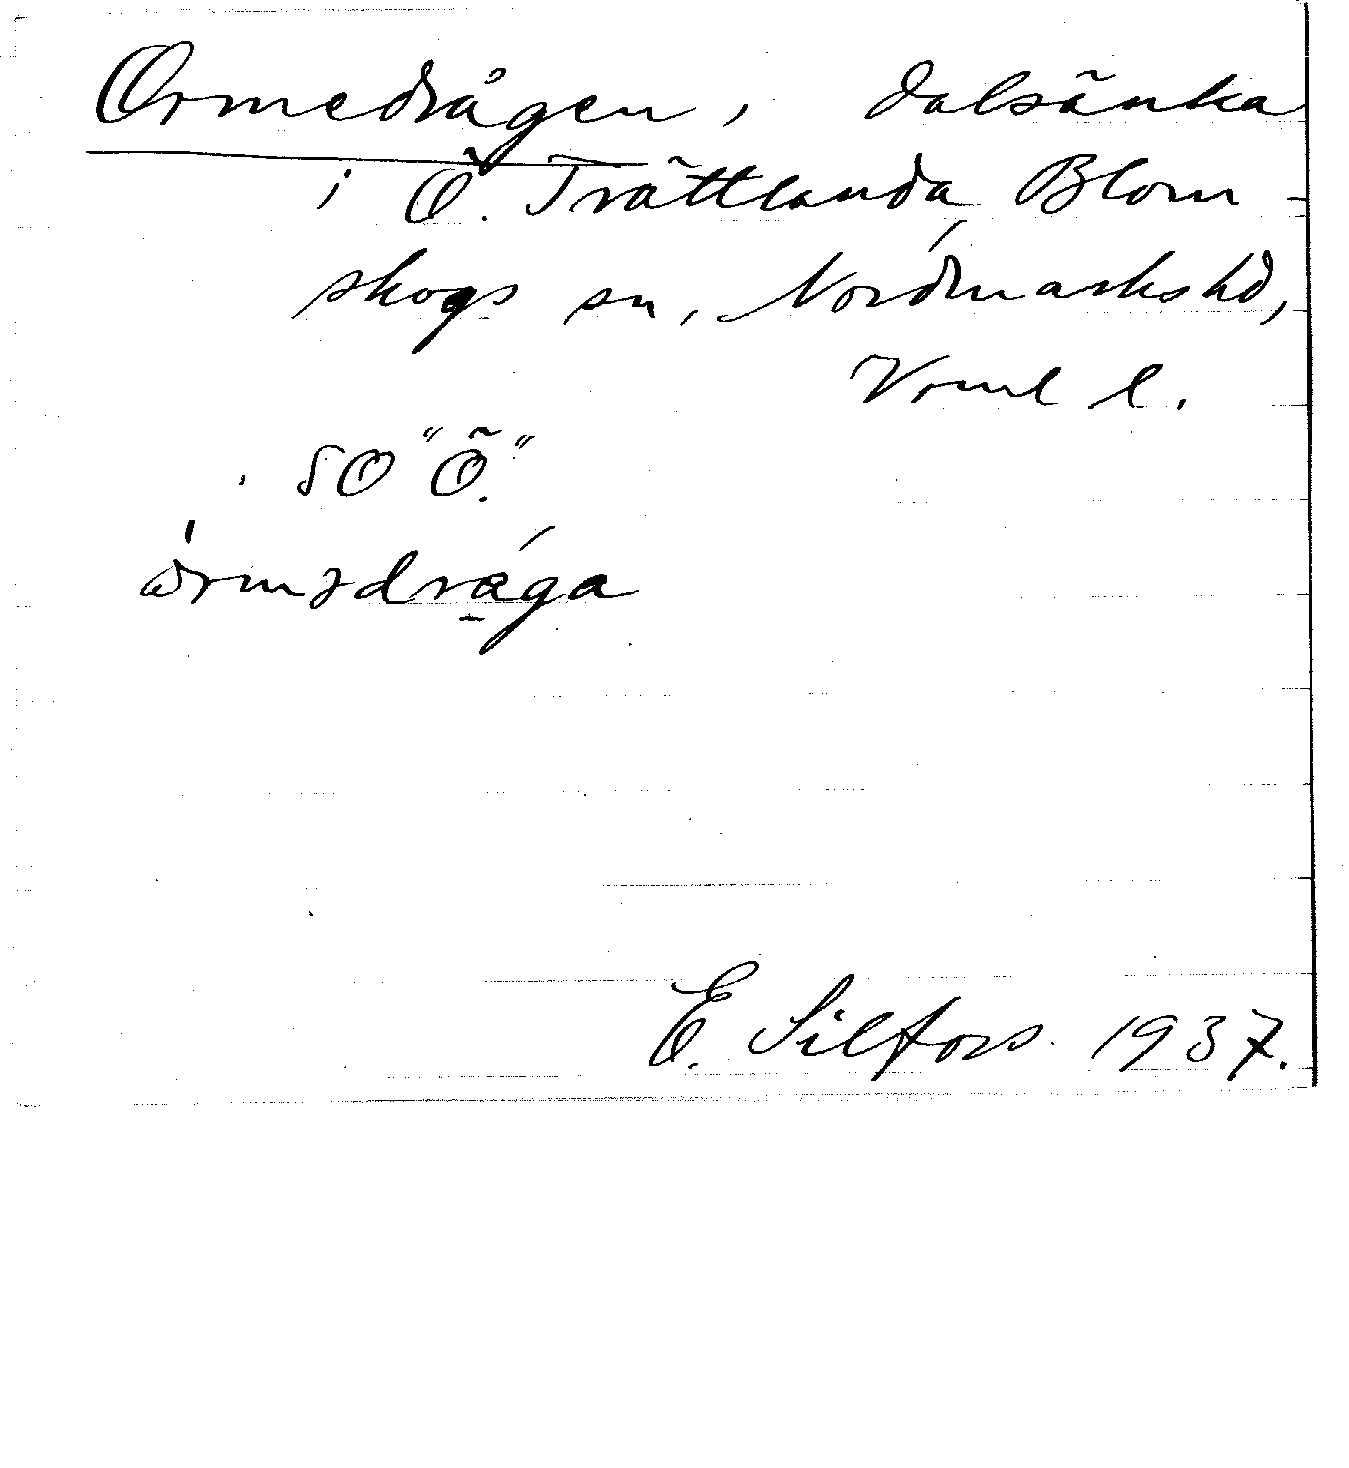 Ormedrågen, dalsänka
i Ö. Trättlanda, Blom-
skogs sn, Nordmarks hd,
Vrml l.
SO "Ö."
E. Silfors. 1937.